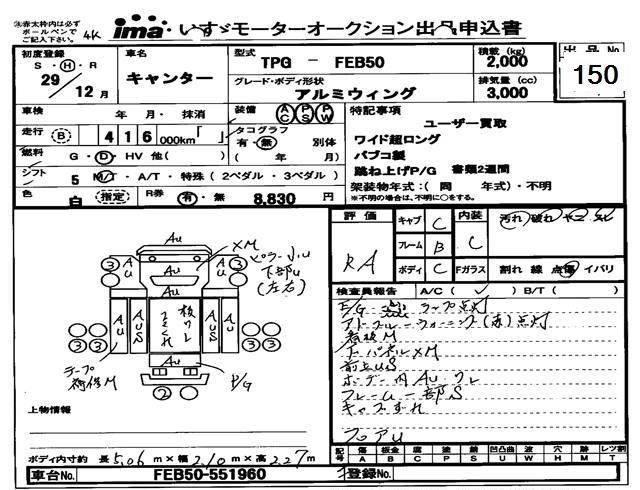 ※赤太枠内は必ず
ボールペンで
ご記入下さい。
4K
ima いすゞモーターオークション出品申込書
初度登録
S・H・R
29/12月
車名
キャンター
型式
TPG － FEB50
積載(kg)
2,000
グレード・ボディ形状
アルミウィング
排気量(cc)
3,000
出品No
150
車検
年 月・抹消
装備
AC PS PW
走行 B 416 000km「 」
タコグラフ
有・無 別体
( 年 月)
燃料
G・D・HV 他( )
シフト
5 M/T・A/T・特殊(2ペダル・3ペダル)
色
白 指定
R券
有・無 8,830 円
特記事項
ユーザー買取
ワイド超ロング
パブコ製
跳ね上げP/G 書類2週間
架装物年式:( 同 年式)・不明
※不明の場合は、不明に○をする。
評価
RA
キャブ C
フレーム B
ボディ C
内装
C
Fガラス
汚れ 破れ ヤニ スレ
割れ 線 点傷 イバリ
検査員報告 A/C(✓) B/T( )
E/G ランプ点灯
アドブルーウォーニング(赤)点灯
看板M
ナーパネルXM
前立US
ボデー内AUワレ
フレーム一部S
キャブずれ
フロアU
AU
XM
ピラーJ,U
下部U
(左右)
3
3
AU
AU
3
3
AU
AUS
AUS
AU
板ワレ
ささくれ
3
3
3
3
AU
テープ
補修M
P/G
2
上物情報
ボディ内寸約 長 5.06 m×幅 2.10 m×高 2.27 m
記号
傷 A
板金 B
腐 C
塗 P
錆 S
凹凸曲 U
波 W
穴 H
跡 M
レツ割 T
車台No. FEB50-551960
登録No.